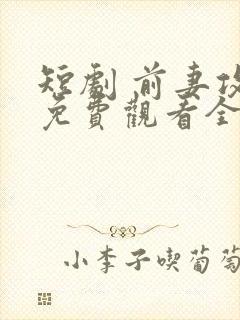 短劇 前妻
免費觀看全
小李子喫葡萄